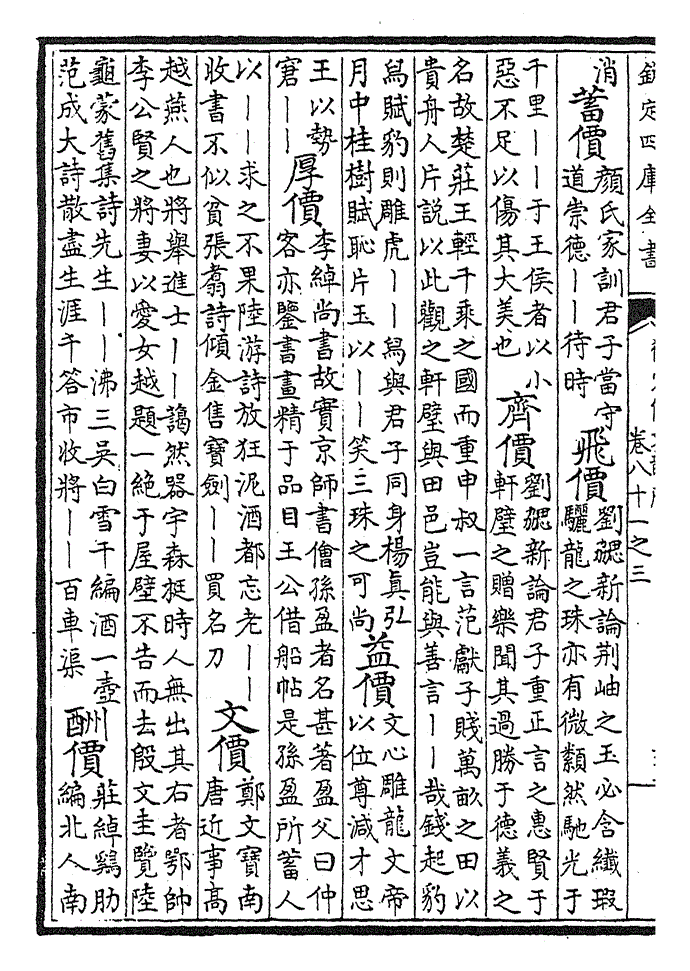 欽定四庫全書
卷八十一之三
消
蓄價 顏氏家訓君子當守
道崇德丨丨待時
飛價 劉勰新論荊岫之玉必含纖瑕
驪龍之珠亦有微纇然馳光于
千里丨丨于王侯者以小
惡不足以傷其大美也
齊價 劉勰新論君子重正言之惠賢于
軒璧之贈樂聞其過勝于德義之
名故楚莊王輕千乘之國而重申叔一言范獻子賤萬畝之田以
貴舟人片說以此觀之軒璧與田邑豈能與善言丨丨哉錢起豹
舄賦豹則雕虎丨丨舄與君子同身楊真弘
月中桂樹賦恥片玉以丨丨笑三珠之可尚
益價 文心雕龍文帝
以位尊減才思
王以勢
窘丨丨
厚價 李綽尚書故實京師書僧孫盈者名甚著盈父曰仲
容亦鑒書畫精于品目王公借船帖是孫盈所蓄人
以丨丨求之不果陸游詩放狂泥酒都忘老丨丨
收書不似貧張翥詩傾金售寶劍丨丨買名刀
文價 鄭文寶南
唐近事高
越燕人也將舉進士丨丨藹然器宇森挺時人無出其右者鄂帥
李公賢之將妻以愛女越題一絕于屋壁不告而去殷文圭覽陸
龜蒙舊集詩先生丨丨沸三吳白雪千編酒一壺
范成大詩散盡生涯干答市收將丨丨百車渠
酬價 莊綽鷄肋
編北人南